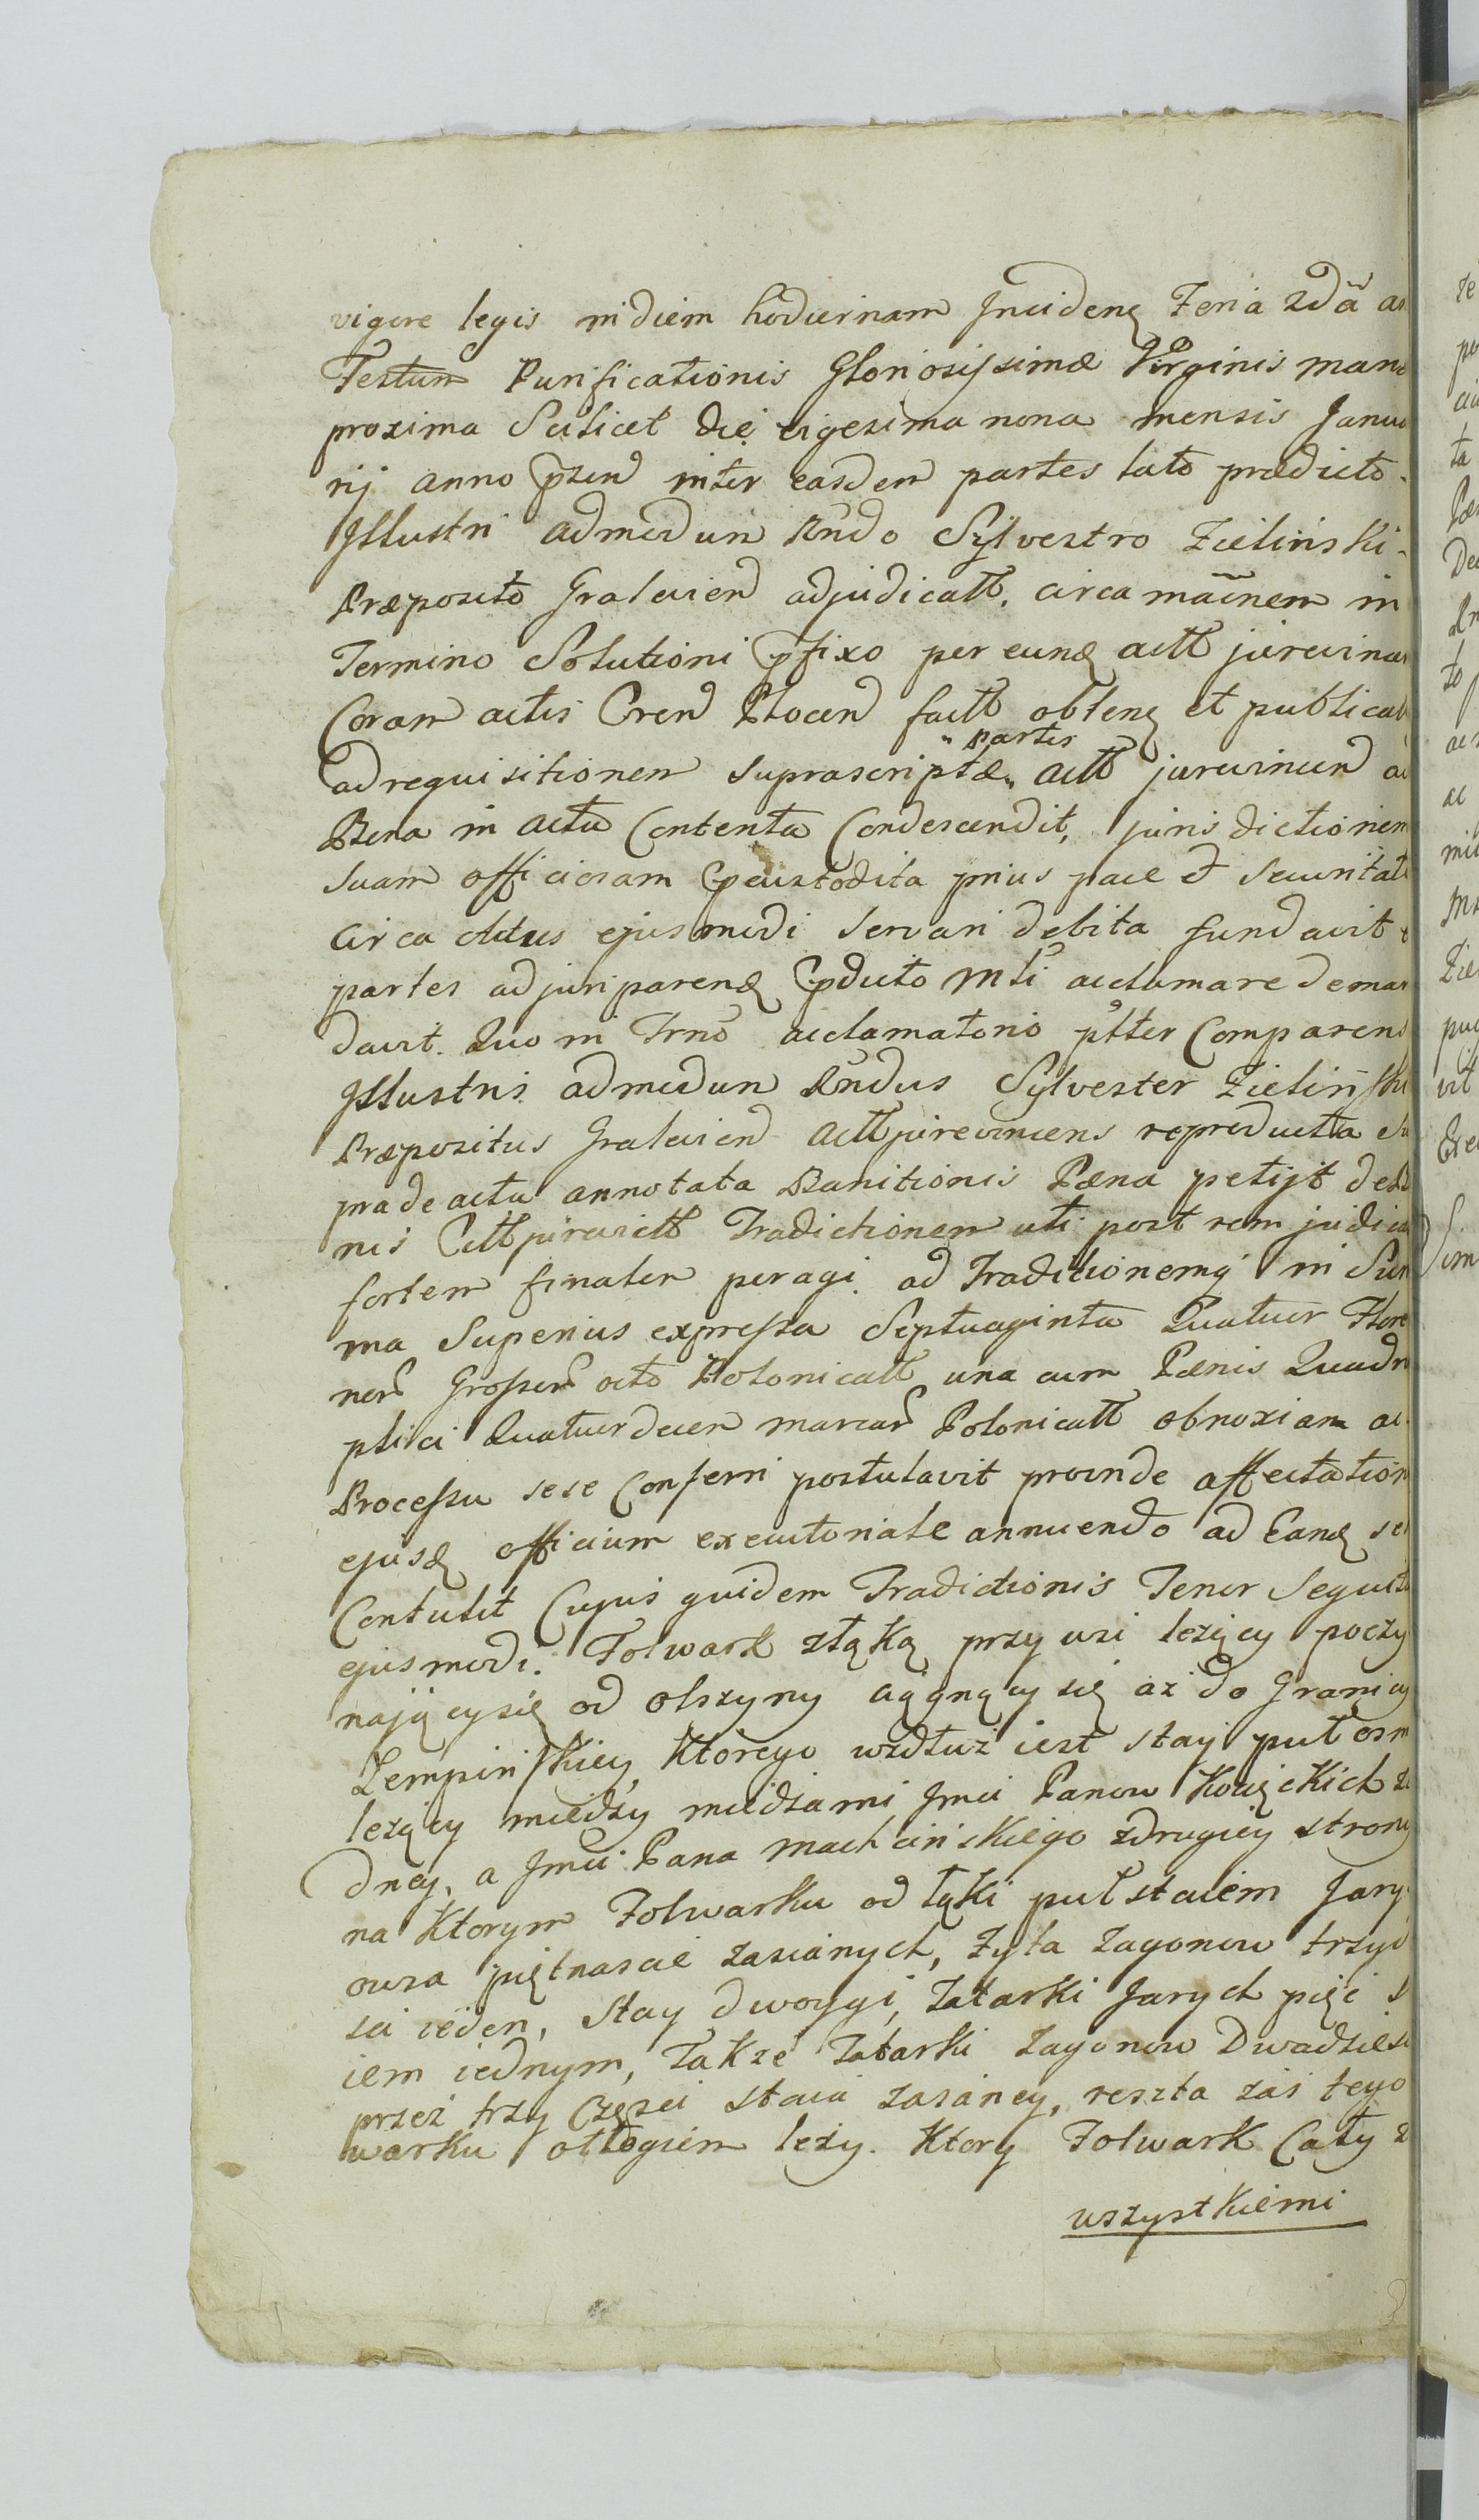 vigore legis in diem hodiernam Incideng Feria 2dã an
Festum Purificationis Gloriosissimæ Virginis Mari
proxima Scilicet die vigesima nona mensis Janua
rij anno pzend inter easdem partes lato prædicto
Illustri admodum Rndo Sylvestro Zielinski
Præposito Gralevien adjudicatt. circa mãnem in
Termino Solutioni pfixo per eund actt jurevincen
Coram actis Cren Plocen factt obteng et publicat
ad requisitionem suprascriptæ „ Partis „ actt jurevincen ad
Bona in actu Contenta Condescendit, jurisdictionem
suam officiosam pcustodita prius pace et securitate
circa actus ejusmodi servari debita fundavit et
partes ad juri pareng pducto Mli acclamare deman
davit. Quo in Trno acclamatorio psltter Comparens
Illustris admodum Rndus Sylvester Zielinski
Præpositus Gralevien actt jurevincens reproducta su
pra de actu annotata Banitionis Pæna petijt de bo
nis Citt jurevictt Traditionem uti post rem judica
fortem finaliter peragi. ad Traditionemq in Sum
ma Superius expressa Septuaginta Quatuor Flore
nor Grossor octo Polonicatt una cum Pænis Quadru
plici Quatuordecem marcar Polonicatt obnoxiam ac
Processu sese Conferri postulavit proinde affectation
ejusd officium executoriale annuendo ad Eand se
Contulit Cujus quidem Traditionis Tenor Sequit
ejusmodi. Folwark złąką przy wsi leżący poczy
nający się od olszyny ciągnący się aż do Granicy
Zempinskiey, którego wzdłuż iest stay puł osm
leżący między miedzami Jmci Panow Kosięckich ze
dney, a Jmci Pana Machcińskiego zdrugiey strony
na Ktorym Folwarku od łąki puł staiem Jary
owsa piętnascie zasianych, żyta zagonow trzyd
sci ieden, stay dwoygi, Tatarki Jarych pięć s
iem iednym, Także Tatarki zagonow Dwadziesc
przez trzy części staia zasaney, reszta zaś tego
warku odłogiem leży. Ktory Folwark Cały z
wszystkiemi